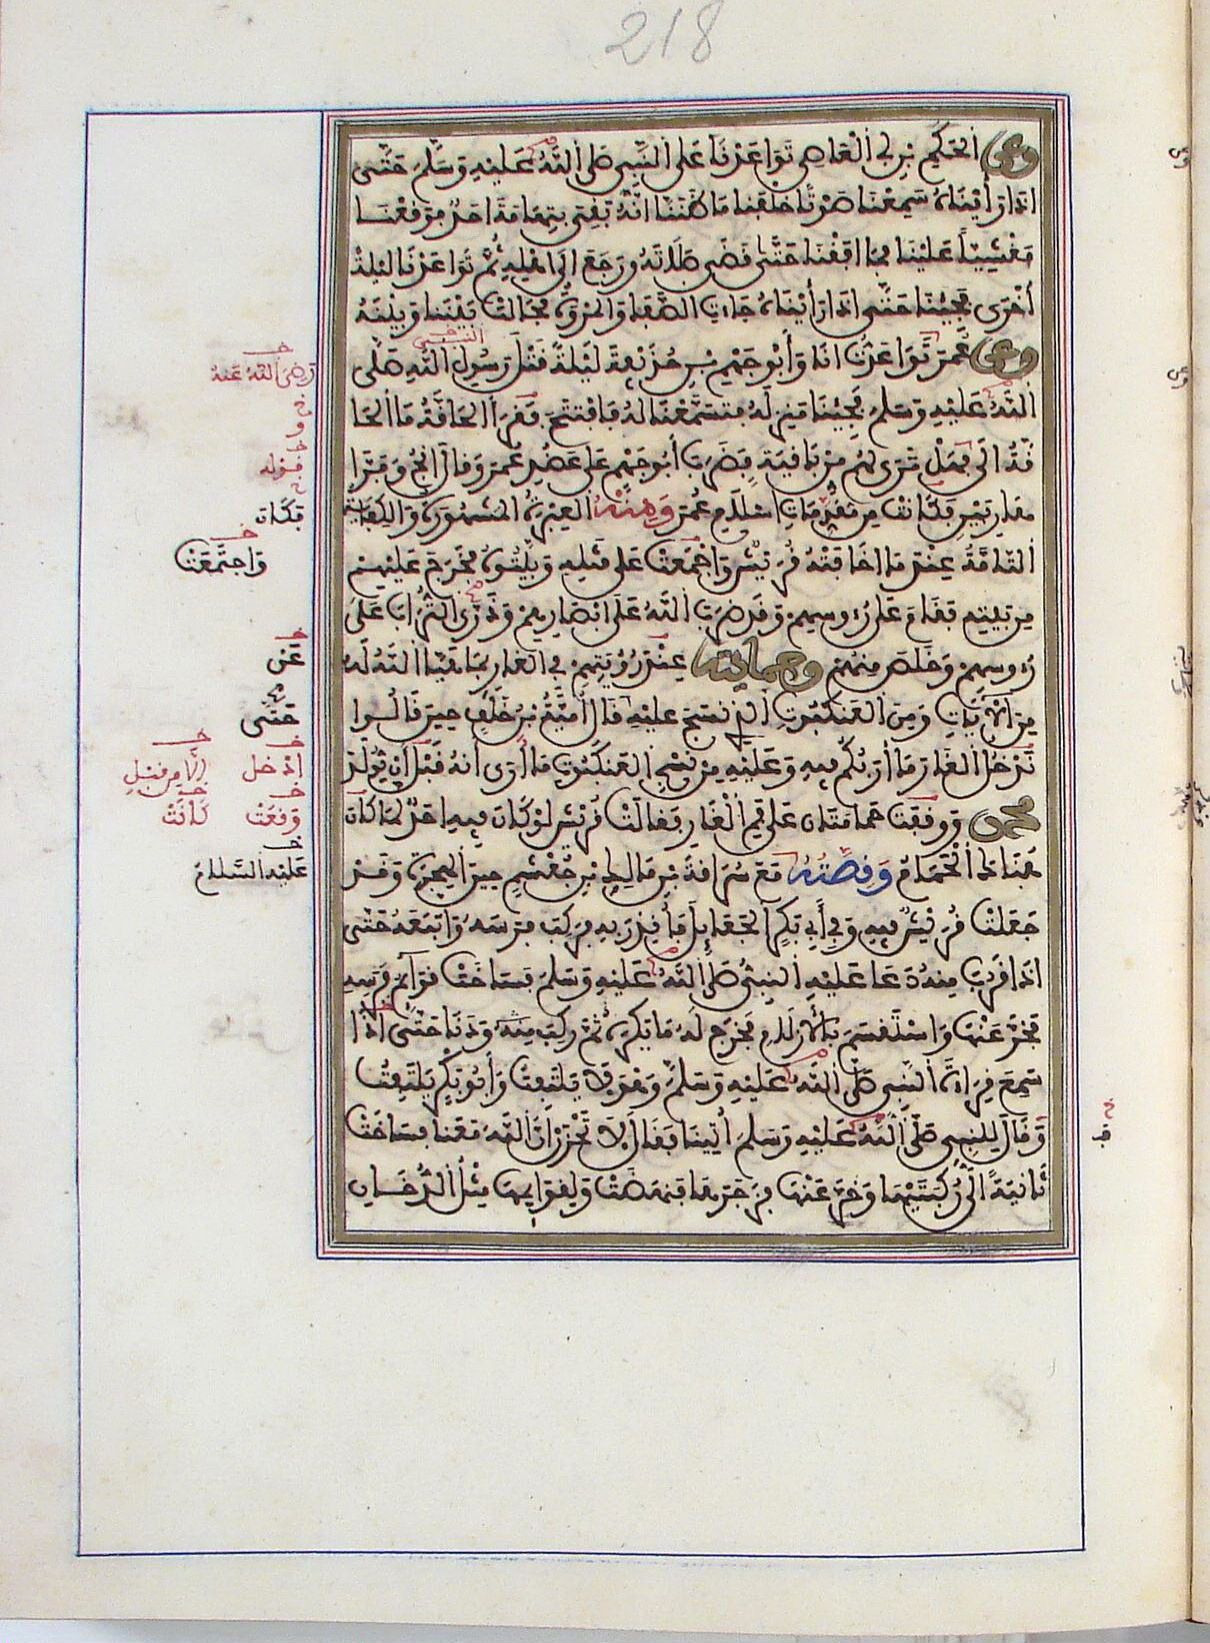 218
وعن الحكم بن أبي العاصي تواعدنا على النبي صلى الله عليه وسلم حتى
اذا رأيناه سمعنا صوتا خلفنا ما ظننا انه بقي بتهامة احد فوقعنا
مغشيا علينا فما افقنا حتى قضى صلاته ورجع الى اهله ثم تواعدنا ليلة
أخرى فجئنا حتى اذا رأيناه جاءت الصفا والمروة فحالت بيننا وبينه
وعن عمر تواعدت انا وأبو جهم بن حذيفة ليلة قتل رسول الله صلى
النبي
رضي الله عنه
الله عليه وسلم فجئنا منزله فتسمعنا له فافتتح وقرأ الحاقة ما الحا
و
قة الى فهل ترى لهم من باقية فضرب أبو جهم على عضد عمر وقال انج وفرا
قوله
هاربين فكانت من مقدمات اسلام عمر ومنه العبرة المشهورة والكفاية
فكان
التامة عندما اخافته قريش واجمعت على قتله وبيتوه فخرج عليهم
واجتمعت
من بيته فقام على رءوسهم وقد ضرب الله على ابصارهم وذرى التراب على
رءوسهم وخلص منهم وحمايته عن رؤيتهم في الغار بما هيأ الله له
عن
من الايات ومن العنكبوت الذي نسج عليه قال أمية بن خلف حين قالوا
حتى
ندخل الغار ما أربكم فيه وعليه من نسج العنكبوت ما أرى أنه قبل ان يولد
ادخل الا من قبل
محمد ووقفت حمامتان على فم الغار فقالت قريش لو كان فيه احد لما كان
وقعت كانت
هنالك الحمام وقصته مع سراقة بن مالك بن جعشم حين الهجرة وقد
عليه السلام
جعلت قريش فيه وفي أبي بكر الجعائل فأنذر به فركب فرسه واتبعه حتى
اذا قرب منه دعا عليه النبي صلى الله عليه وسلم فساخت قوائم فرسه
فخر عنها واستقسم بالازلام فخرج له ما يكره ثم ركب منه ودنا حتى اذا
سمع قراءة النبي صلى الله عليه وسلم وهو لا يلتفت وأبو بكر يلتفت
وقال للنبي صلى الله عليه وسلم أتينا فقال لا تحزن ان الله معنا فساخت
ثانية الى ركبتيها وخر عنها فزجرها فنهضت ولقوايمها مثل الدخان